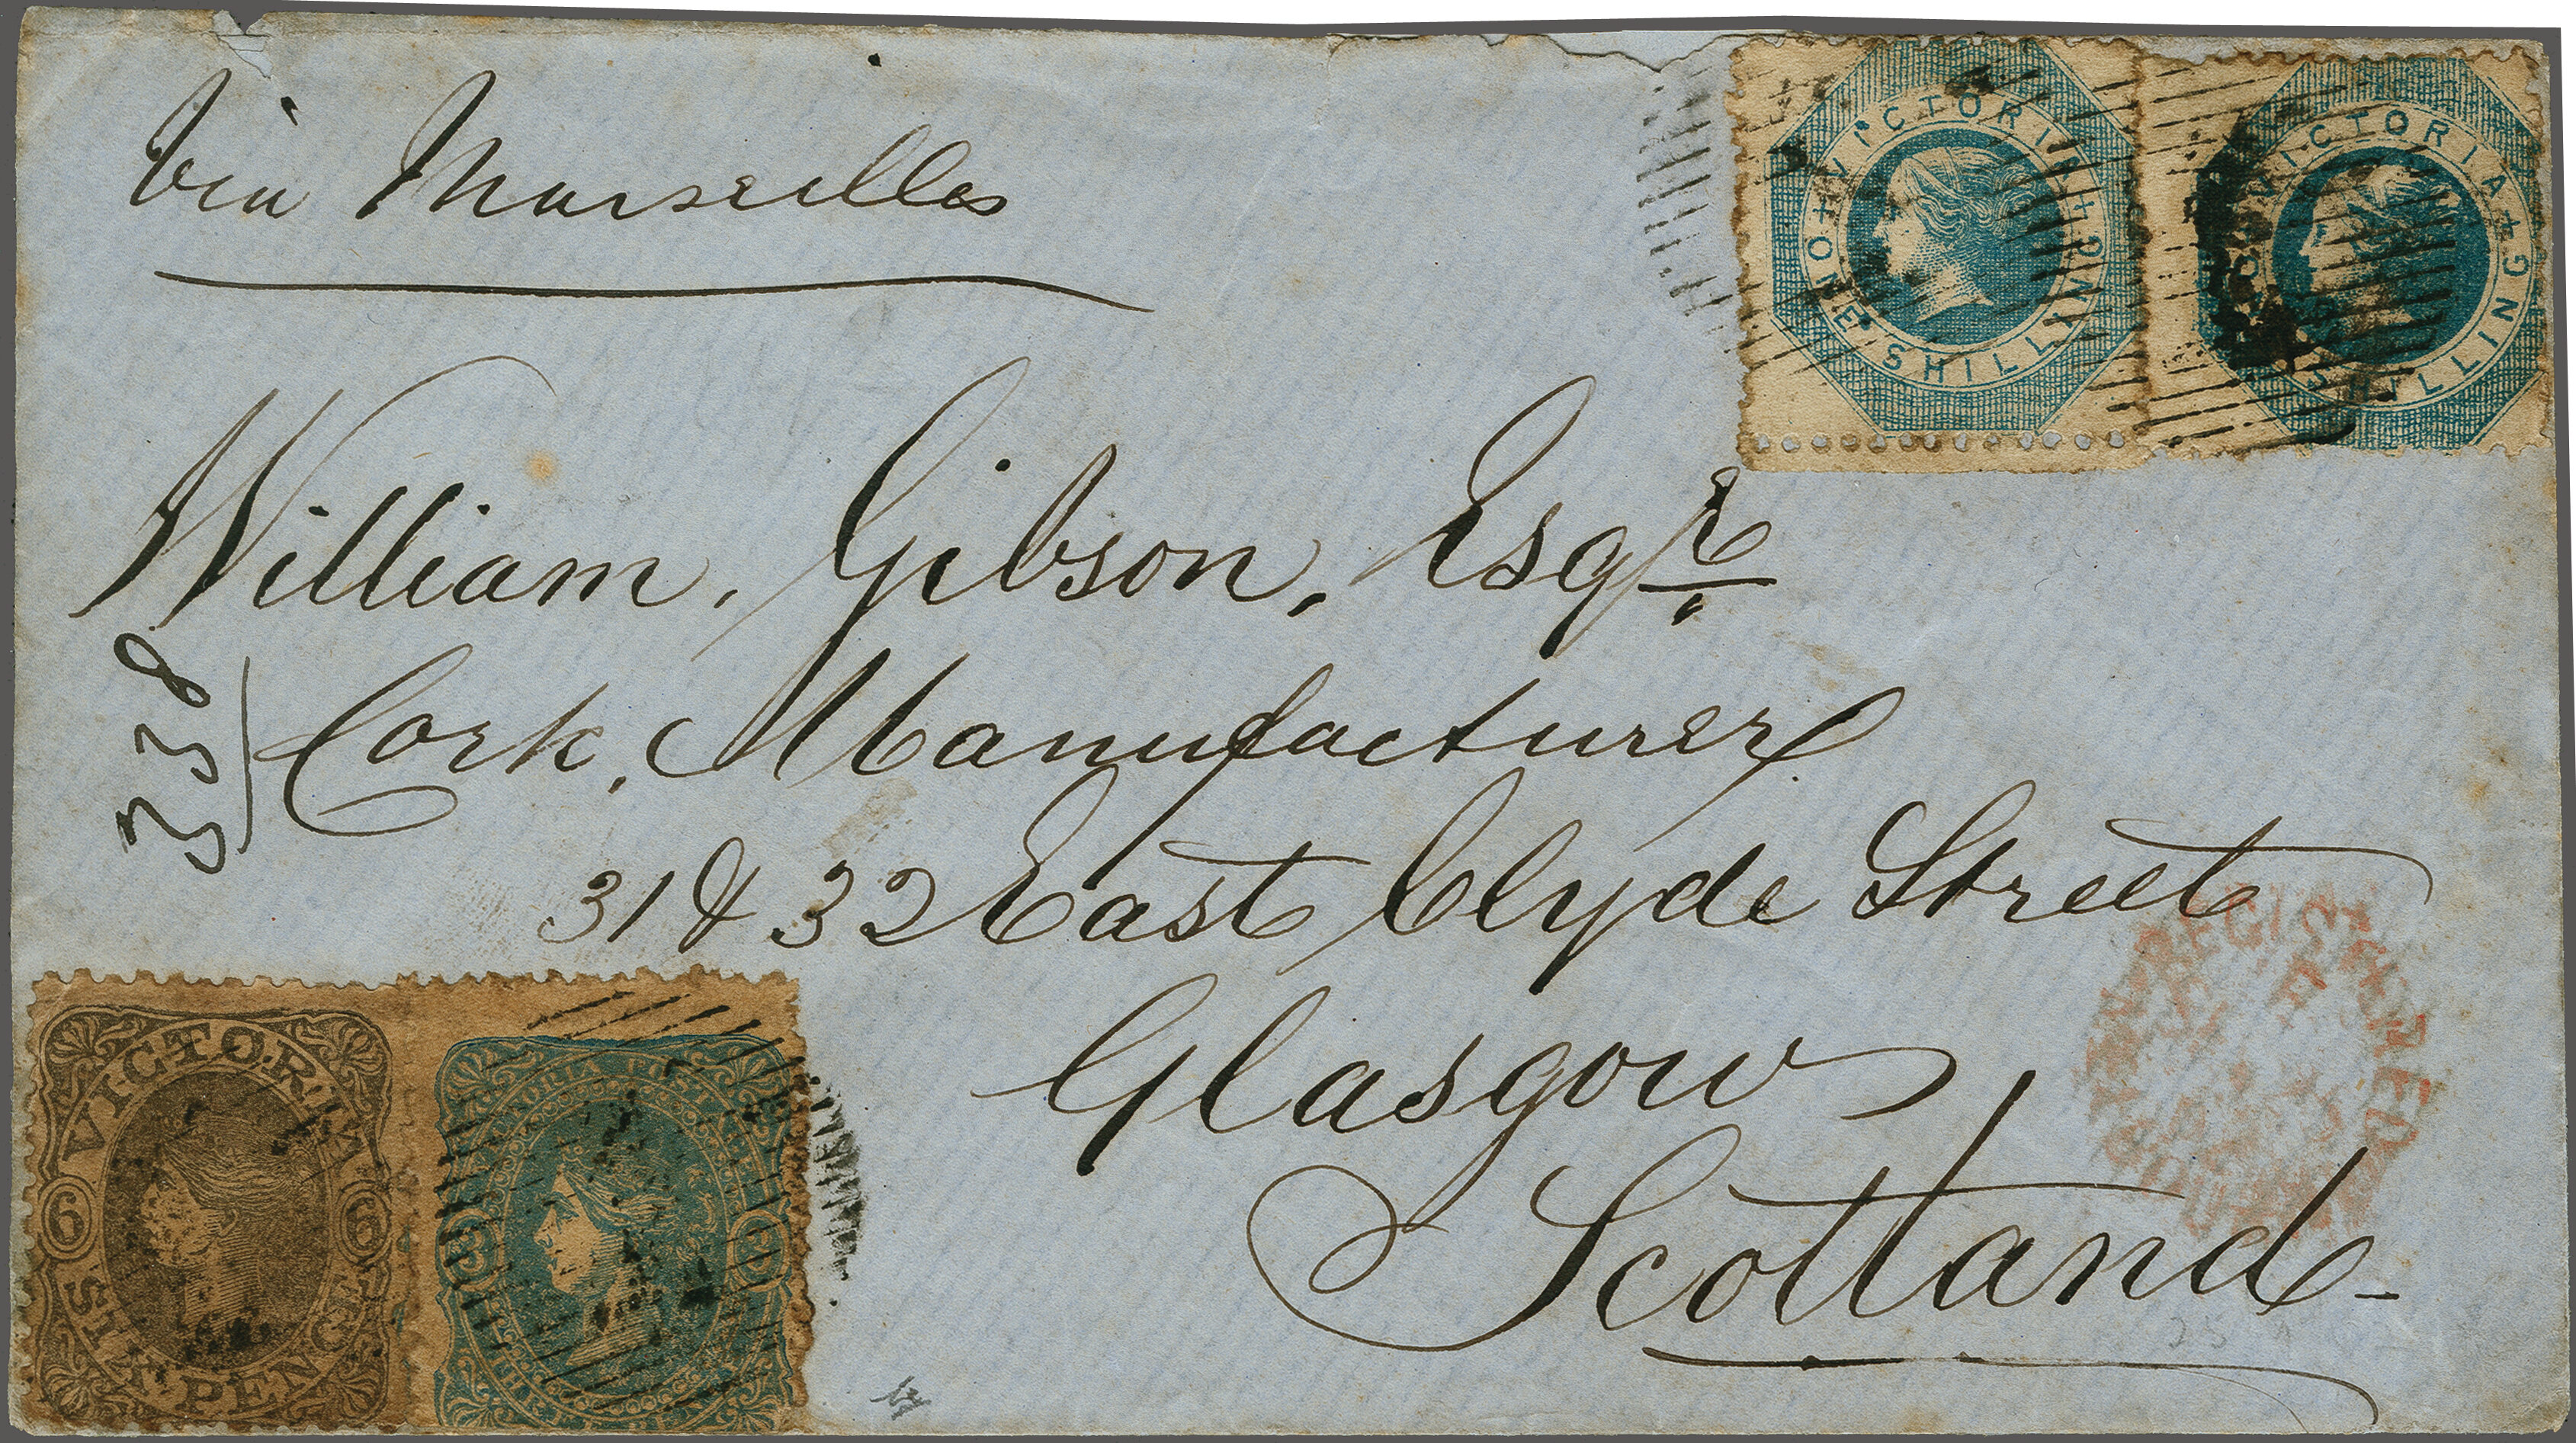 Via Marseilles
VICTORIA + ONE SHILLING +
VICTORIA + ONE SHILLING
William, Gibson, Esqre
338
Cork, Manufacturer
31 & 32 East Clyde Street
Glasgow
Scotland
REGISTERED
VICTORIA
6 6
SIX PENCE
VICTORIA POSTAGE
3 3
THREE PENCE